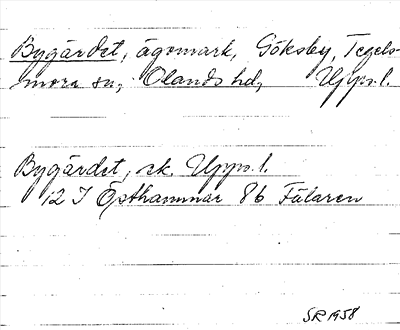 Bygärdet, ägomark, Göksby, Tegels-
mora sn, Olands hd, Upps. l.
Bygärdet, ek. Upps. l.
12 I Östhammar 8b Fälaren
SR 1958